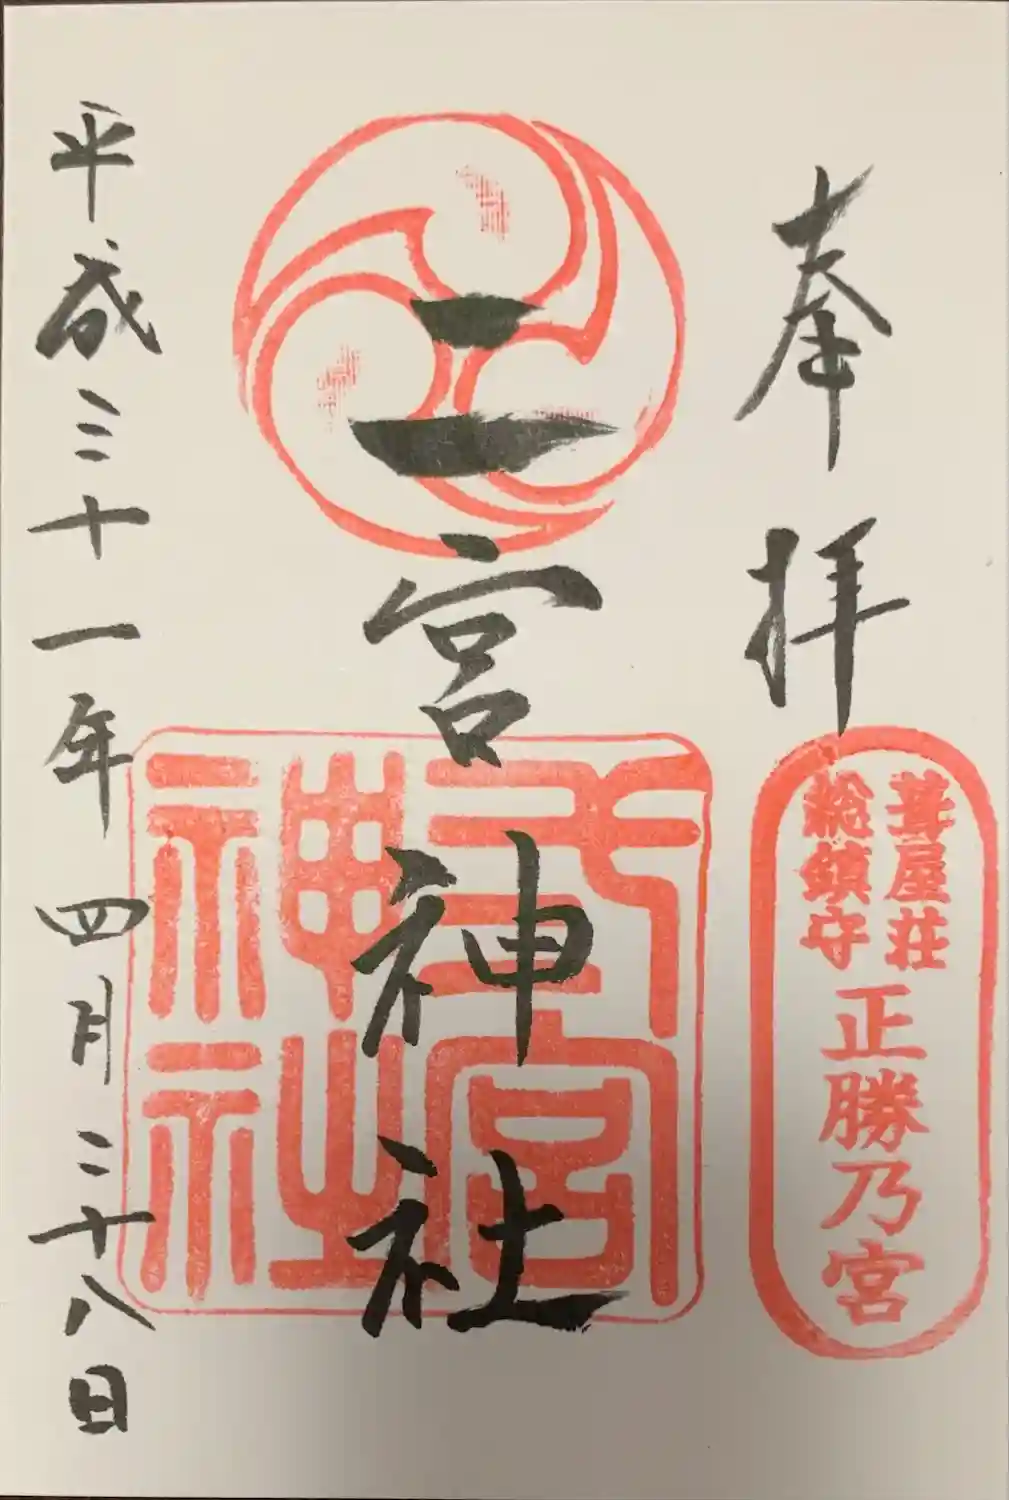 奉拝
葺屋荘
総鎮守
正勝乃宮
二宮神社
弌宮
神社
平成三十一年四月二十八日